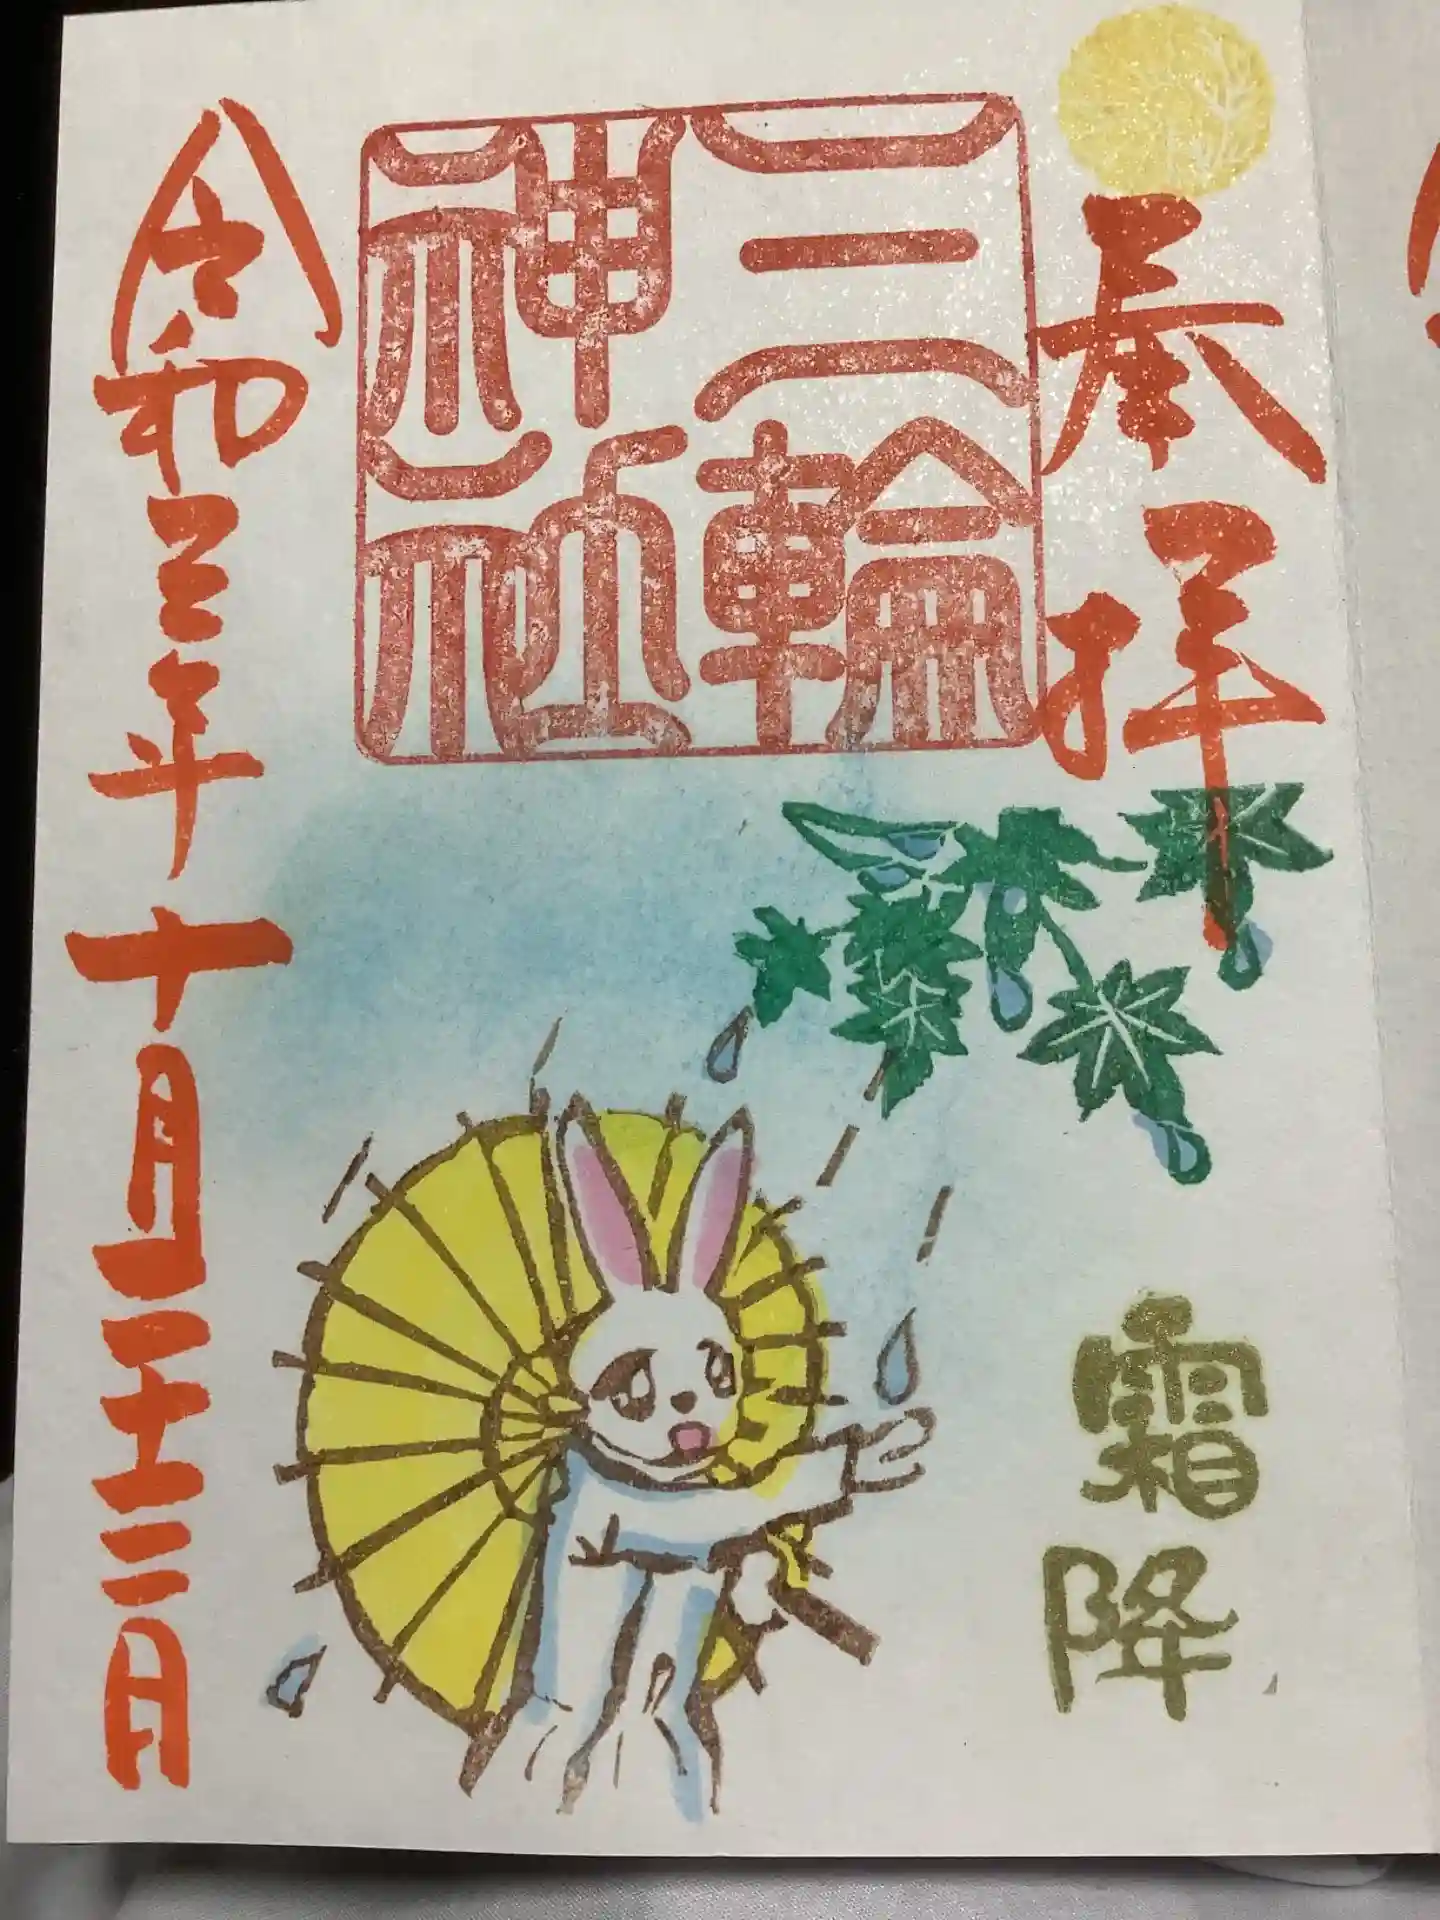 奉拝
三輪
神社
霜降
令和三年十月二十三日